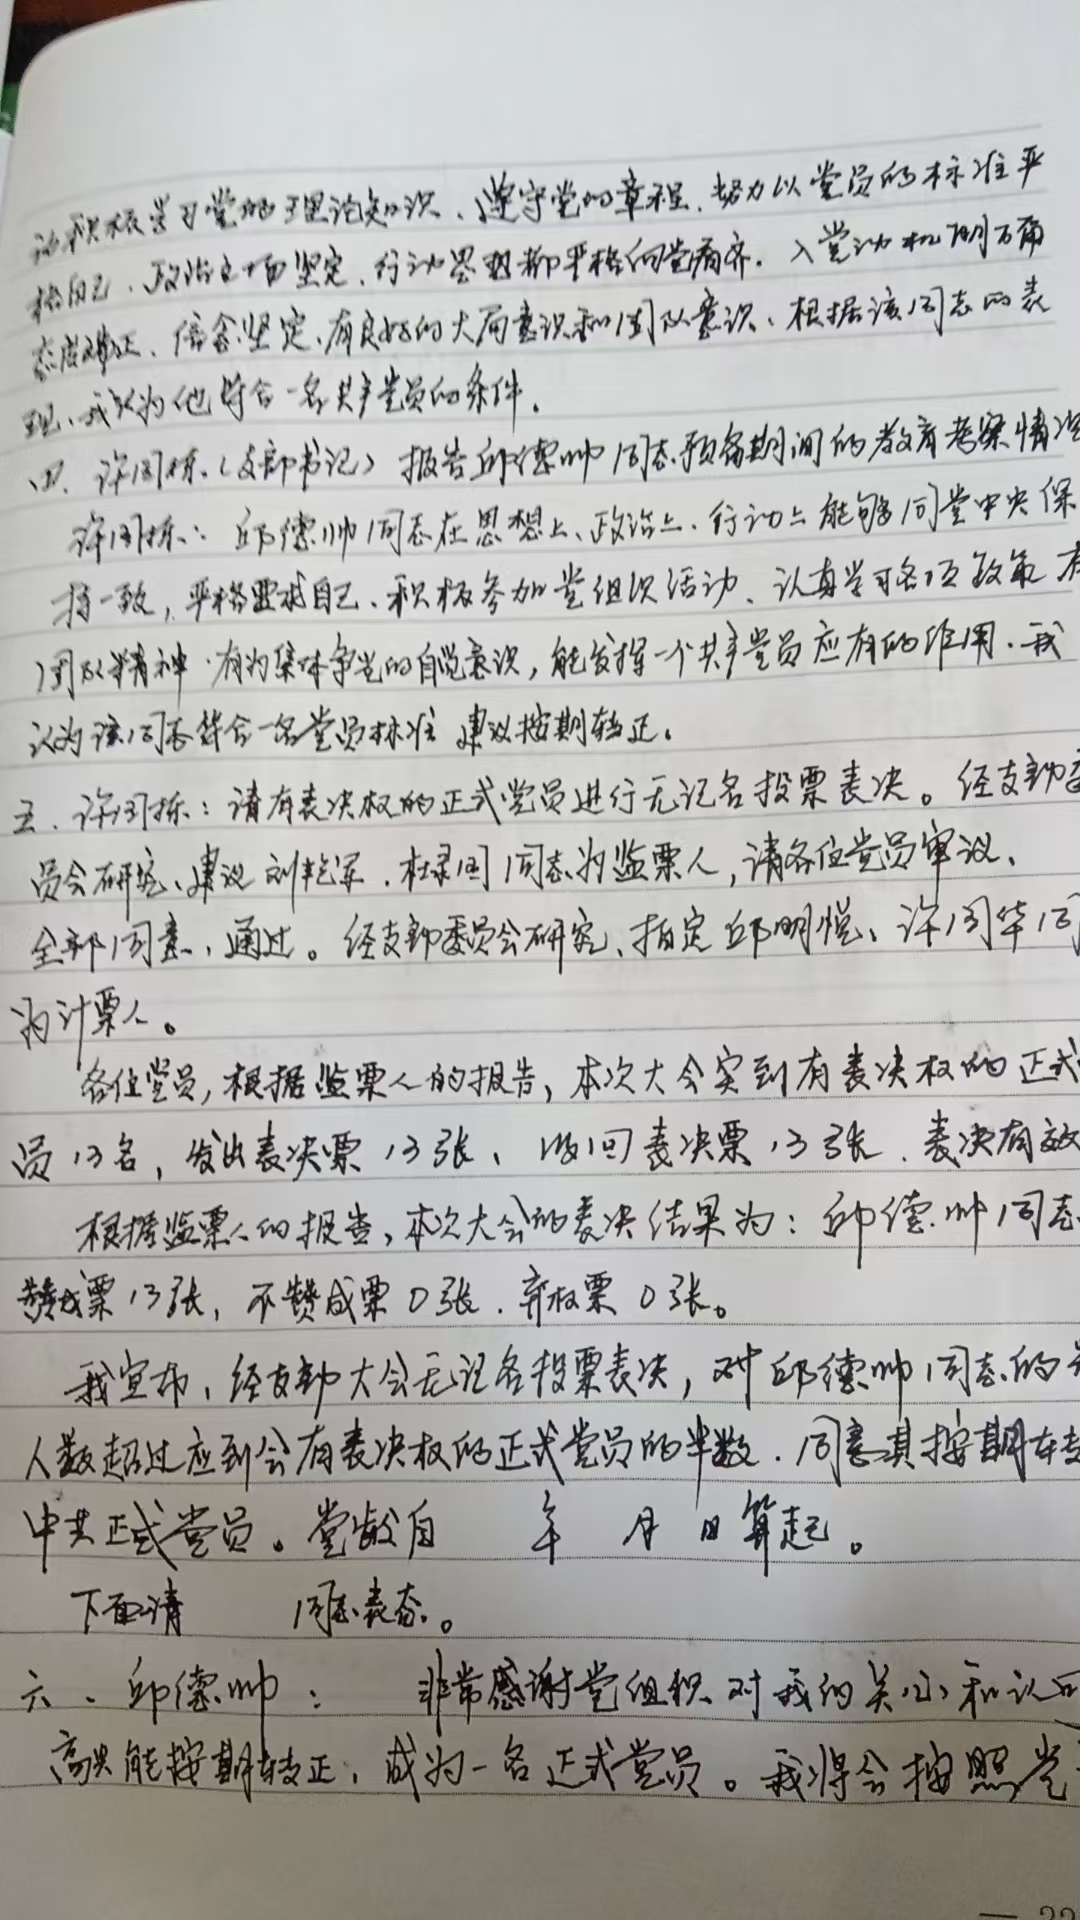 积极学习党的理论知识、遵守党的章程、努力以党员的标准严
格自己、政治立场坚定、行动思想都严格向党看齐。入党动机明确
态度端正、信念坚定、有良好的大局意识和团队意识、根据该同志的表
现、我认为他符合一名共产党员的条件。
四、许同栋（支部书记）报告邱德帅同志预备期间的教育考察情况
许同栋：邱德帅同志在思想上、政治上、行动上能够同党中央保
持一致，严格要求自己、积极参加党组织活动、认真学习各项政策 有
团队精神 有为集体争光的自觉意识，能发挥一个共产党员应有的作用．我
认为该同志符合一名党员标准 建议按期转正。
五、许同栋：请有表决权的正式党员进行无记名投票表决。经支部委
员会研究、建议刘艳军、杜录同同志为监票人，请各位党员审议、
全部同意、通过。经支部委员会研究、指定邱明悦、许同华同
为计票人。
各位党员，根据监票人的报告，本次大会实到有表决权的正式
员13名，发出表决票13张、收回表决票13张．表决有效
根据监票人的报告，本次大会的表决结果为：邱德帅同志
赞成票13张，不赞成票0张．弃权票0张。
我宣布，经支部大会无记名投票表决，对邱德帅同志的
人数超过应到会有表决权的正式党员的半数．同意其按期转
中共正式党员。党龄自 年 月 日算起。
下面请 同志表态。
六、邱德帅： 非常感谢党组织对我的关心和认可
高兴能按期转正，成为一名正式党员。我将会按照党
— 22